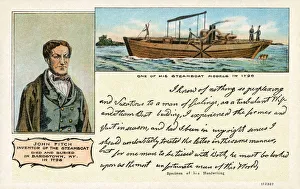 ONE OF HIS STEAMBOAT MODELS IN 1786
I know of nothing so perplexing
and vexatious to a man of feelings, as a turbulent Wife
and Steam boat building. I experienced the former and
quit in season, and had I been in my right senses I
should undoubtedly treated the latter in the same manner,
but for one man to be teased with both, he must be looked
upon as the most unfortunate man of this World.
Specimen of his Handwriting
JOHN FITCH
INVENTOR OF THE STEAMBOAT
DIED AND BURIED
IN BARDSTOWN, KY.
IN 1798